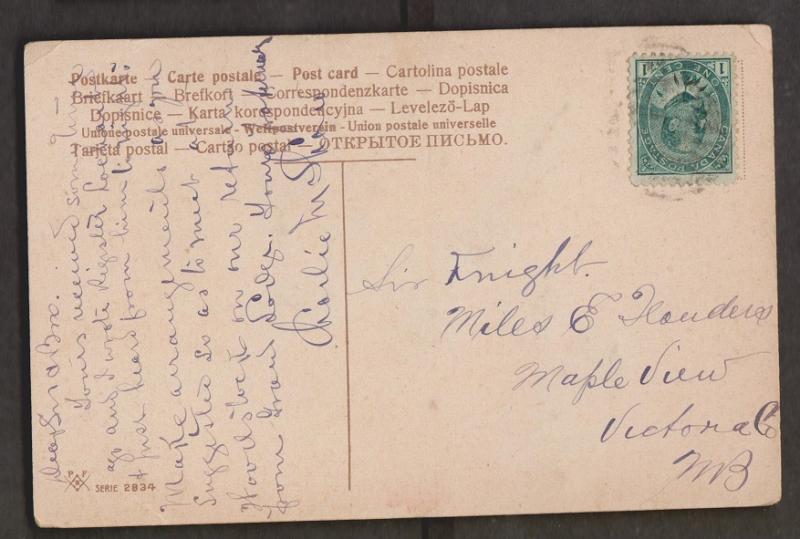 Postkarte — Carte postale — Post card — Cartolina postale
Briefkaart — Brefkort — Correspondenzkarte — Dopisnica
Dopisnice — Karta korespondencyjna — Levelező-Lap
Unione postale universale - Weltpostverein - Union postale universelle
Tarjeta postal — Cartão postal — ОТКРЫТОЕ ПИСЬМО.
1 ONE CENT 1
CANADA POSTAGE
Sir Knight.
Miles E Flanders
Maple View
Victoria Co
NB
Dear Sir & Bro.
Yours received some time
ago and I wrote Register
& just heard from him to
Make arrangements as you
suggested so as to meet at
Woodstock on our return
from Grand Lodge. Yours
Charlie
P F B
SERIE 2834